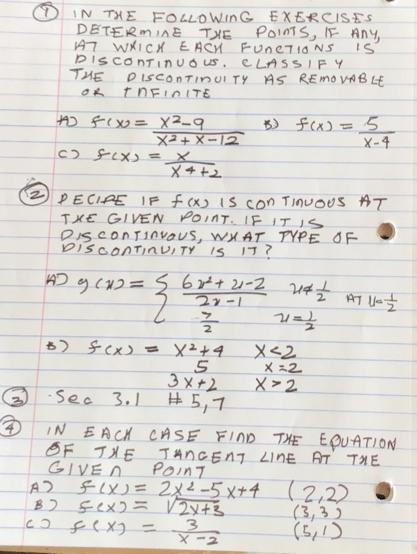 ① IN THE FOLLOWING EXERCISES
DETERMINE THE POINTS, IF ANY,
AT WHICH EACH FUNCTIONS IS
DISCONTINUOUS. CLASSIFY
THE DISCONTINUITY AS REMOVABLE
OR INFINITE
A) f(x) = (x²-9)/(x²+x-12) B) f(x) = 5/(x-4)
C) f(x) = x/(x4+2)
② DECIDE IF f(x) IS CONTINUOUS AT
THE GIVEN POINT. IF IT IS
DISCONTINUOUS, WHAT TYPE OF
DISCONTINUITY IS IT?
A) g(u) = { (6u²+u-2)/(2u-1) u≠1/2 AT u=1/2
7/2 u=1/2
B) f(x) = x²+4 x<2
5 x=2
3x+2 x>2
③ Sec 3.1 # 5,7
④ IN EACH CASE FIND THE EQUATION
OF THE TANGENT LINE AT THE
GIVEN POINT
A) f(x) = 2x²-5x+4 (2,2)
B) f(x) = √(2x+3) (3,3)
C) f(x) = 3/(x-2) (5,1)